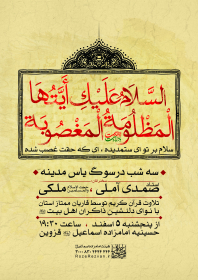 السلام علیك أیتها
المظلومة المغصوبة
سلام بر تو ای ستمدیده ، ای که حقت غصب شده
سه شب در سوگ یاس مدینه
صمدی آملی ، ملکی
تلاوت قرآن کریم توسط قاریان ممتاز استان
با نوای دلنشین ذاکران اهل بیت
از پنجشنبه ۵ اسفند ، ساعت ۱۹:۳۰
حسینیه امامزاده اسماعیل قزوین